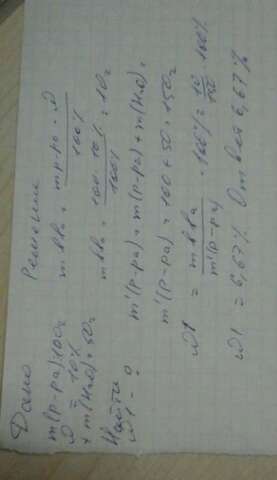 Дано
m(р-ра)=100г
ω = 10%
+ m(H₂O)=50г
Найти
ω1 - ?
Решение
m в-ва = m р-ра · ω / 100%
m в-ва = 100 · 10% / 100% = 10г
m'(р-ра) = m(р-ра) + m(H₂O) =
m'(р-ра) = 100 + 50 = 150г
ω1 = m в-ва / m'(р-ра) · 100% = 10 / 150 · 100%
ω1 = 6,67% Ответ 6,67%